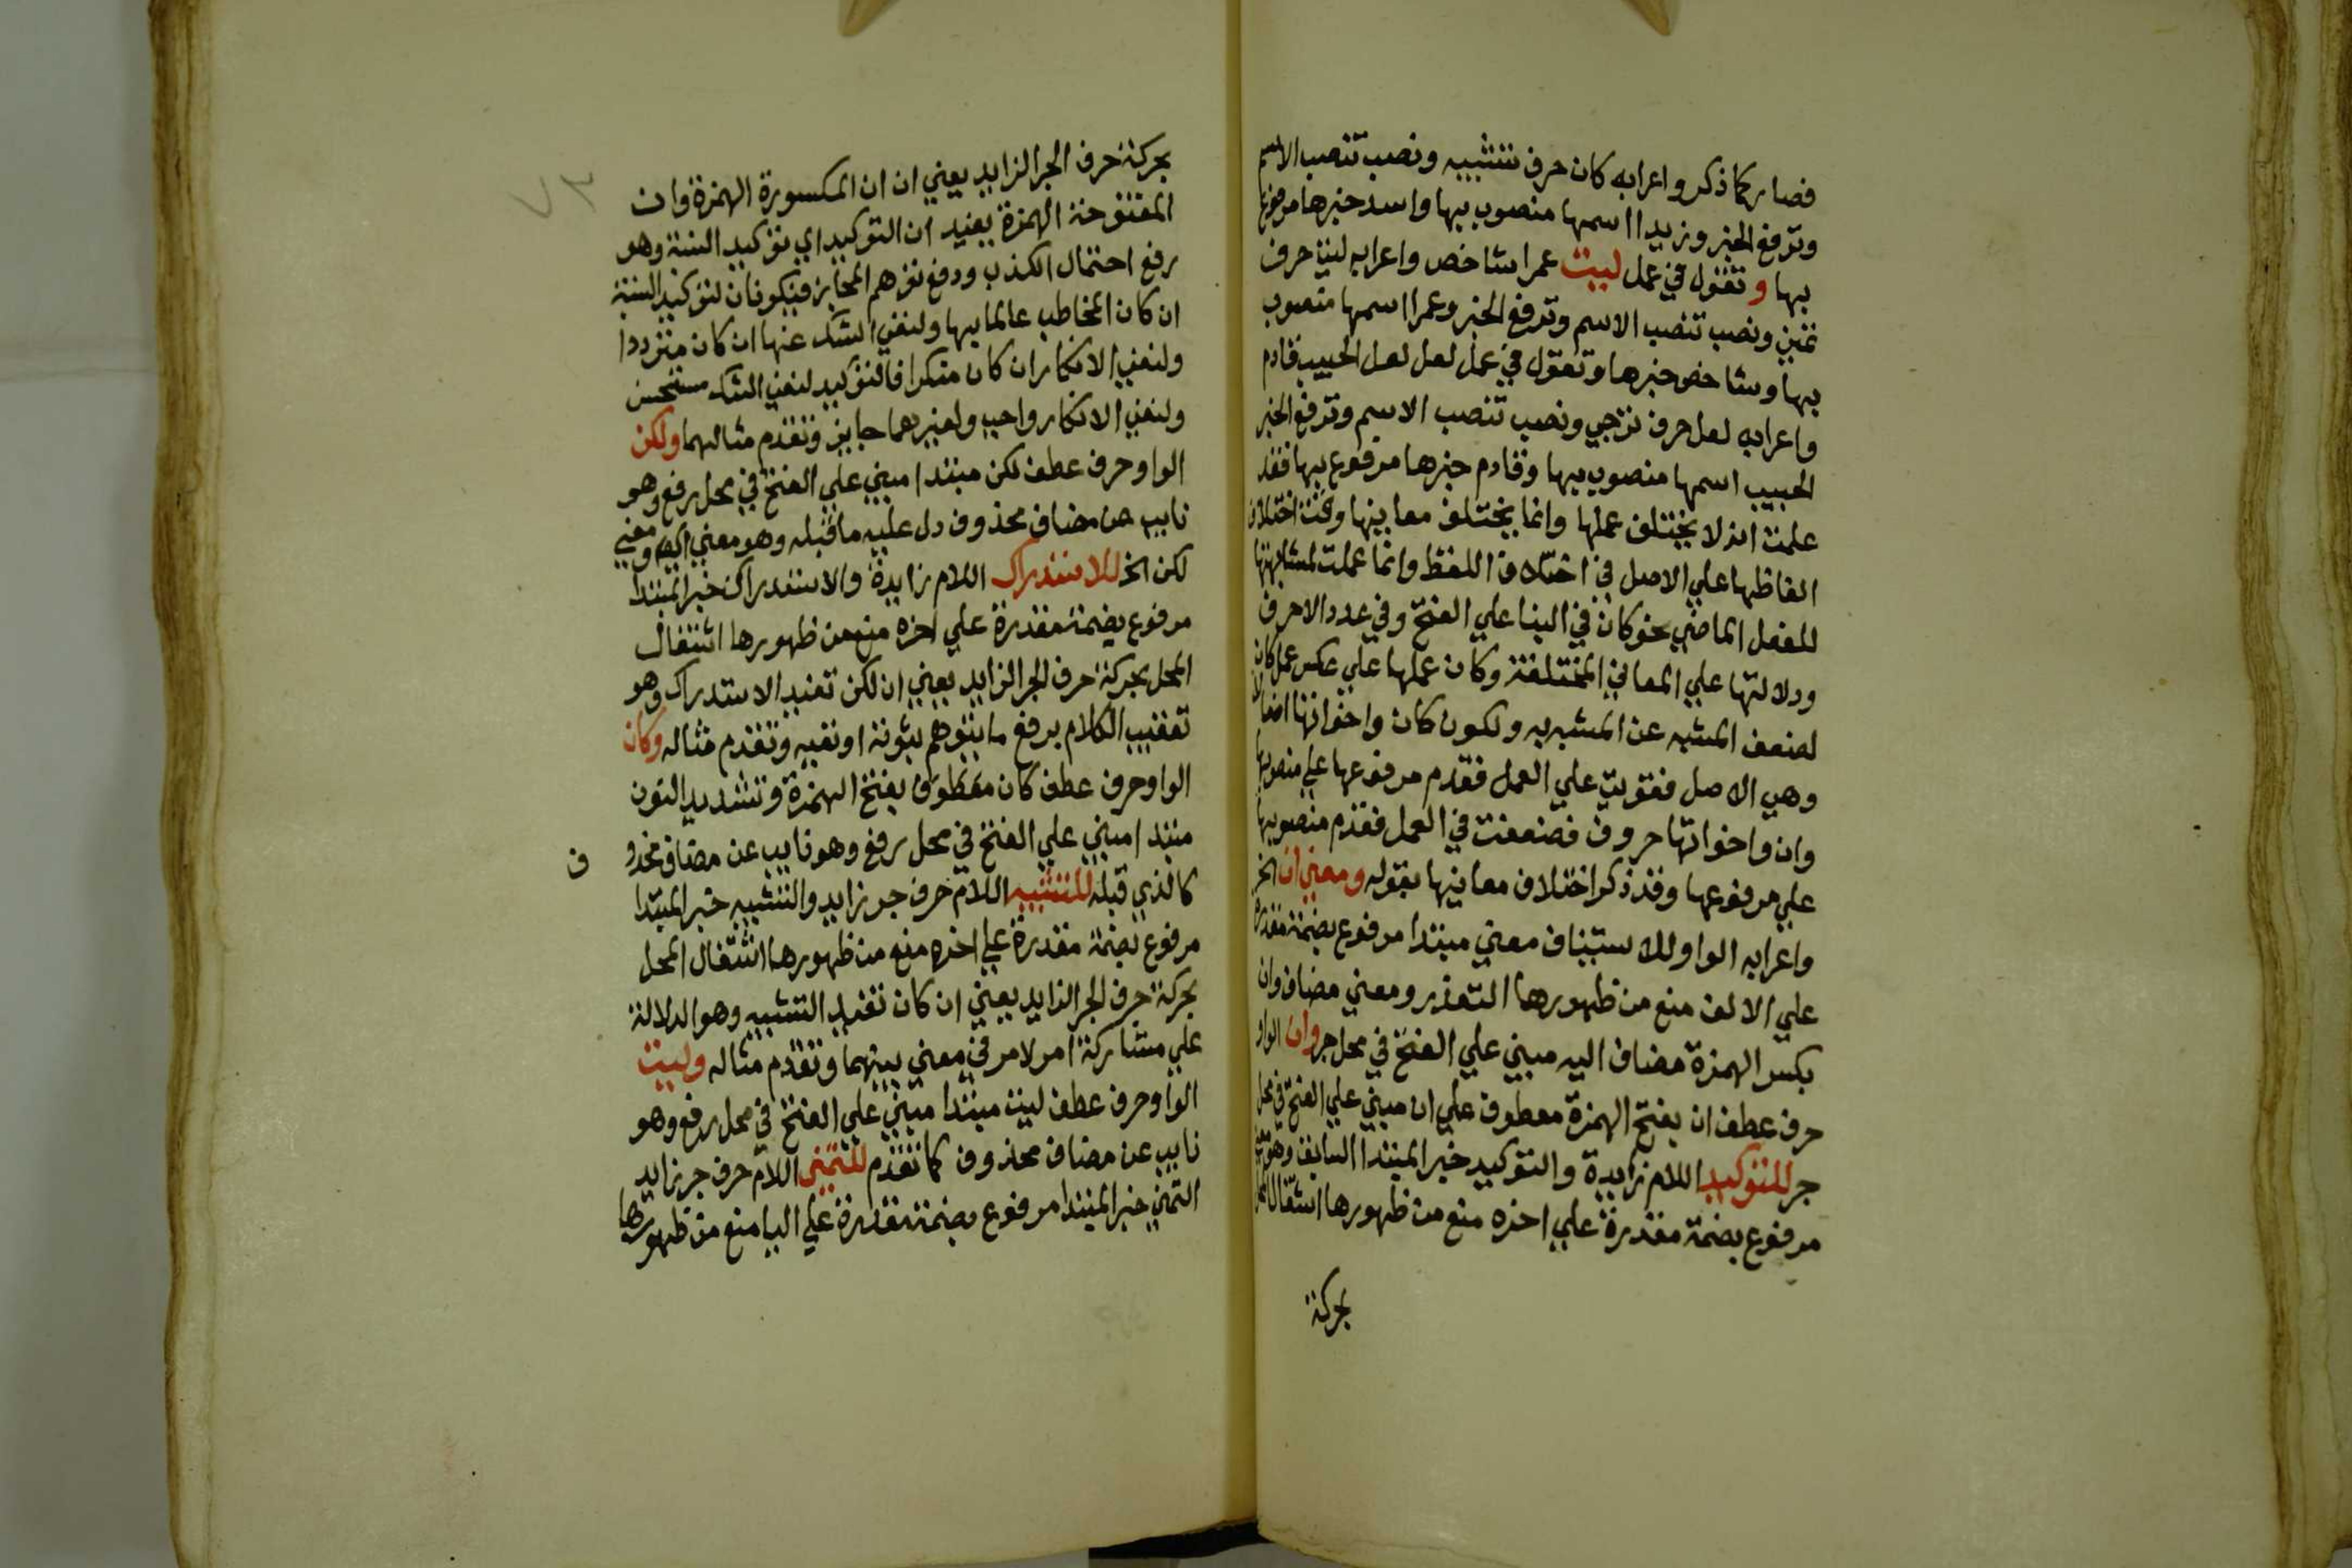 فصار كما ذكر واعرابه كان حرف تشبيه ونصب تنصب الاسم
وترفع الخبر وزيدا اسمها منصوب بها واسد خبرها مرفوع
بها وتقول في عمل ليت عمرا شاخص واعرابه ليت حرف
تمني ونصب تنصب الاسم وترفع الخبر وعمرا اسمها منصوب
بها وشاخص خبرها وتقول في عمل لعل لعل الحبيب قادم
واعرابه لعل حرف ترجي ونصب تنصب الاسم وترفع الخبر
الحبيب اسمها منصوب بها وقادم خبرها مرفوع بها فقد
علمت انه لا يختلف عملها وانما يختلف معانيها وقت اختلاف
الفاظها علي الاصل في اختلاف اللفظ وانما عملت لمشابهتها
للفعل الماضي نحو كان في البنا علي الفتح وفي عدد الاحرف
ودلالتها علي المعاني المختلفة وكان عملها علي عكس عمل كان
لضعف المشبه عن المشبه به ولكون كان واخواتها افعالا
وهي الاصل فقويت علي العمل فقدم مرفوعها علي منصوبها
وان واخواتها حروف فضعفت في العمل فقدم منصوبها
علي مرفوعها وقد ذكر اختلاف معانيها بقوله ومعني ان الخ
واعرابه الواو للاستيناف معني مبتدا مرفوع بضمة مقدرة
علي الالف منع من ظهورها التعذر ومعني مضاف وان
بكسر الهمزة مضاف اليه مبني علي الفتح في محل جر وان الواو
حرف عطف ان بفتح الهمزة معطوف علي ان مبني علي الفتح في محل
جر للتوكيد اللام زايدة والتوكيد خبر المبتدا السابق وهو معني
مرفوع بضمة مقدرة علي اخره منع من ظهورها اشتغال المحل
بحركة
بحركة حرف الجر الزايد يعني ان ان المكسورة الهمزة وان
المفتوحة الهمزة يفيد ان التوكيد اي توكيد النسبة وهو
رفع احتمال الكذب ودفع توهم المجاز فيكونان لتوكيد النسبة
ان كان المخاطب عالما بها ولنفي الشك عنها ان كان مترددا
ولنفي الانكار ان كان منكرا فالتوكيد لنفي الشك مستحسن
ولنفي الانكار واجب ولغيرهما جايز وتقدم مثالهما ولكن
الواو حرف عطف لكن مبتدا مبني علي الفتح في محل رفع وهو
نايب عن مضاف محذوف دل عليه ما قبله وهو معني اي ومعني
لكن الخ للاستدراك اللام زايدة والاستدراك خبر المبتدا
مرفوع بضمة مقدرة علي اخره منع من ظهورها اشتغال
المحل بحركة حرف الجر الزايد يعني ان لكن تفيد الاستدراك وهو
تعقيب الكلام برفع ما يتوهم ثبوته او نفيه وتقدم مثاله وكان
الواو حرف عطف كان معطوف بفتح الهمزة وتشديد النون
مبتدا مبني علي الفتح في محل رفع وهو نايب عن مضاف محذوف
كالذي قبله للتشبيه اللام حرف جر زايد والتشبيه خبر المبتدا
مرفوع بضمة مقدرة علي اخره منع من ظهورها اشتغال المحل
بحركة حرف الجر الزايد يعني ان كان تفيد التشبيه وهو الدلالة
علي مشاركة امر لامر في معني بينهما وتقدم مثاله وليت
الواو حرف عطف ليت مبتدا مبني علي الفتح في محل رفع وهو
نايب عن مضاف محذوف كما تقدم للتمني اللام حرف جر زايد
التمني خبر المبتدا مرفوع بضمة مقدرة علي اليا منع من ظهورها